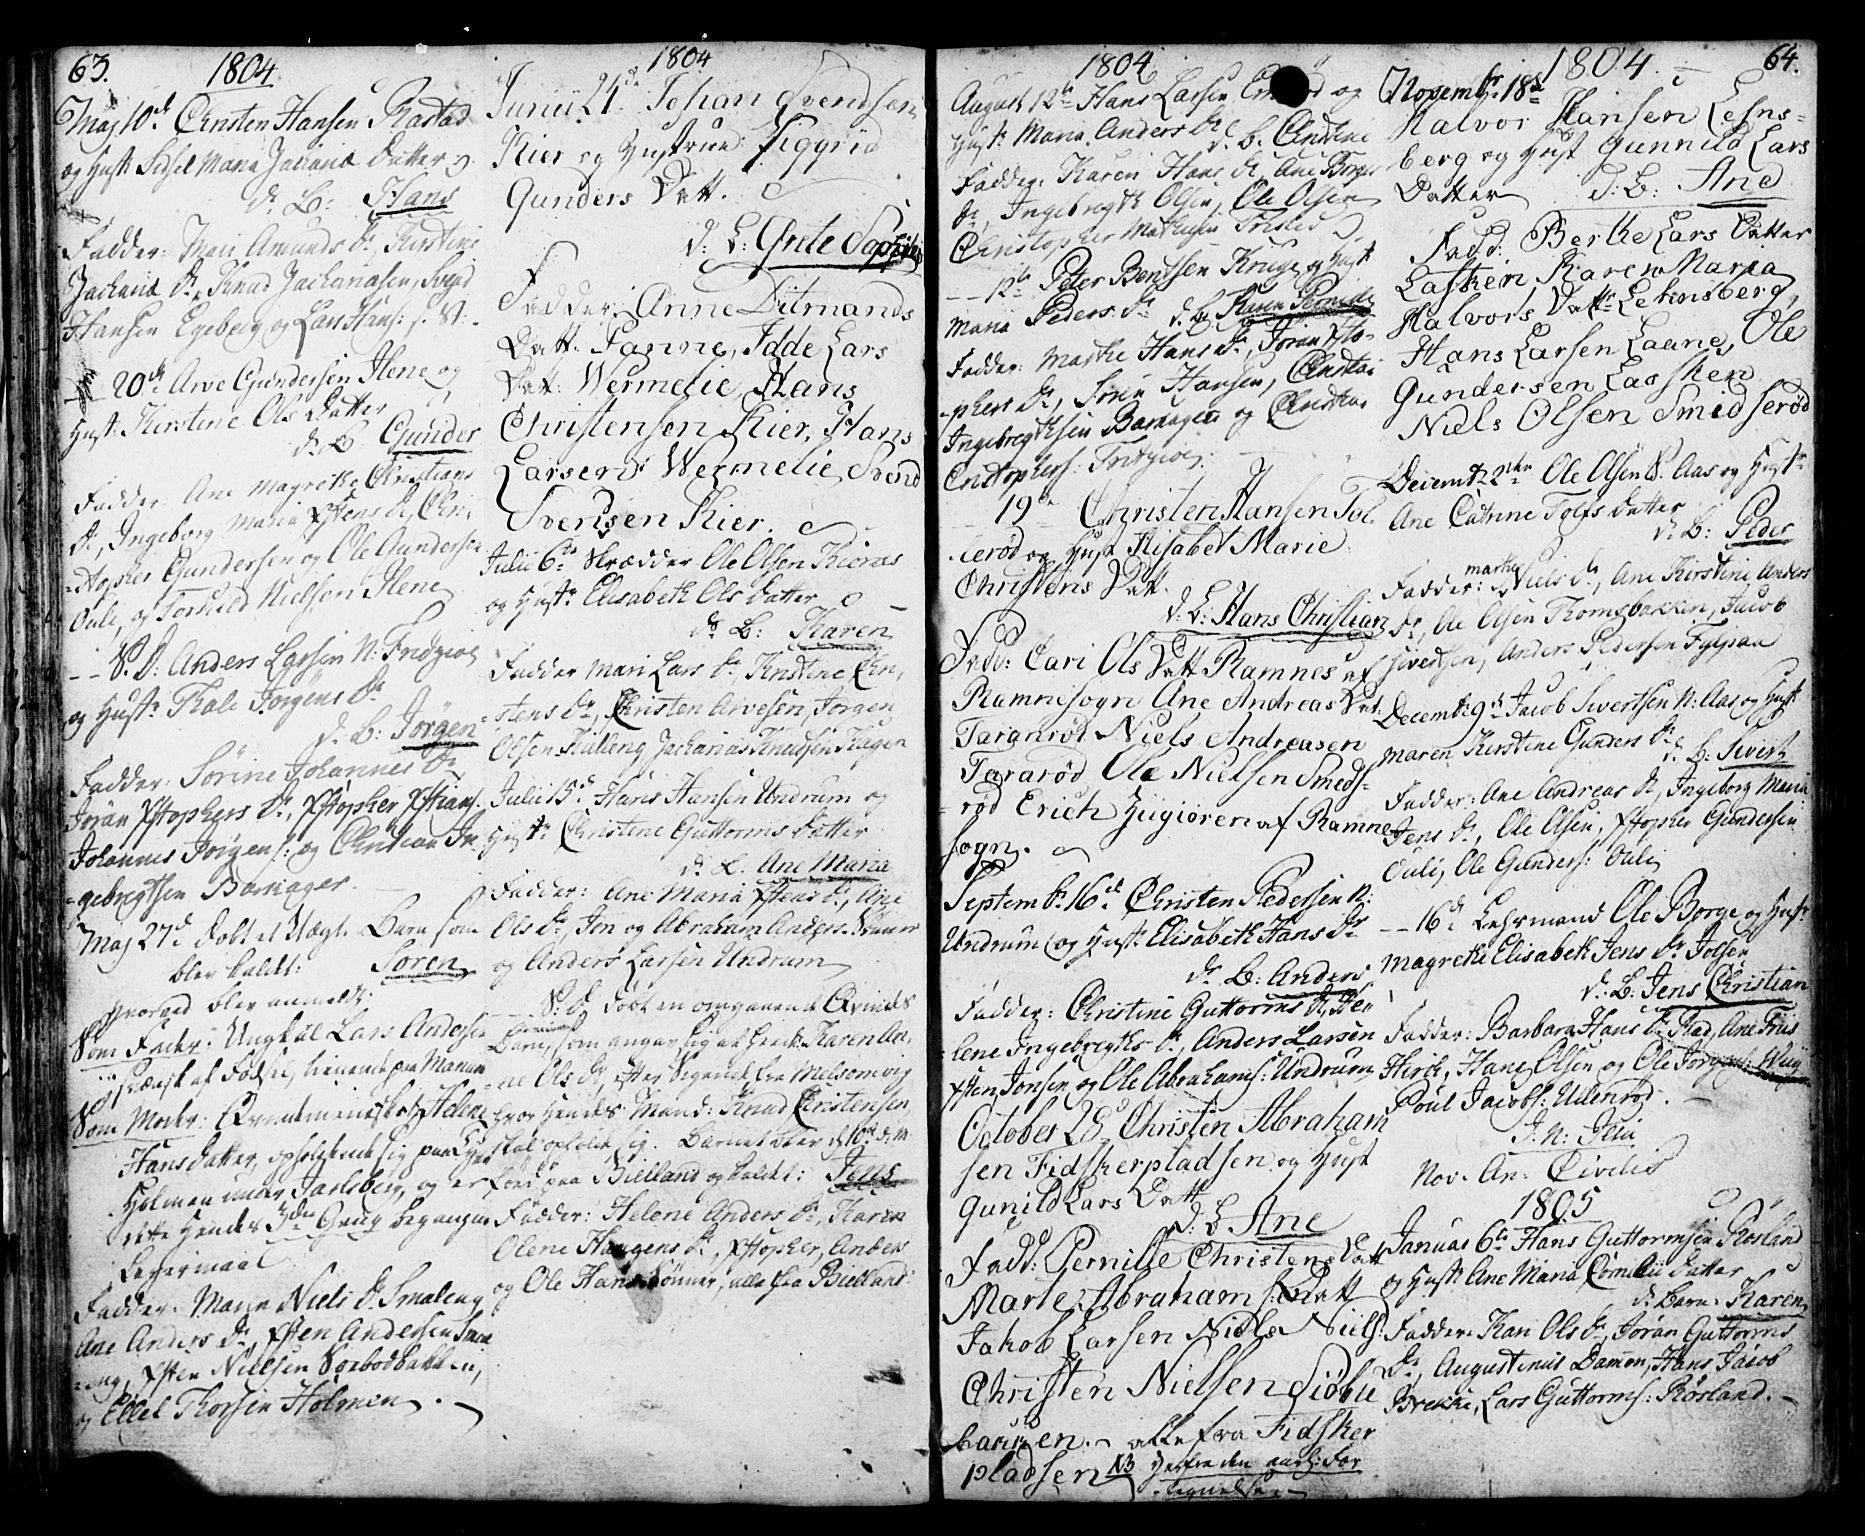 63. 1804
Maj 10d Christen Hansen Rastad
og Hustr Sidsel Maria Zacharia Datter
d. B: Hans
Fadder: Mari Amunds Dr, Kirstine
Zacharia Dr, Knud Zachariasen, Svend
Hansen Egeberg og Lars Hans:
20de Arve Gundersen Ilene og
Hust: Kirstine Ols Datter
d. B. Gunder
Fadder: Ane Magrethe Christians
Dr, Ingeborg Maria Xstens Dr, Chri,
=stopher Gundersen og Ole Gundersen
Ouli, og Torkild Nielsen Ilene
S. D: Anders Larsen N: Fridgiord
og Hustr Thale Jørgens Dr
d. B: Jørgen
Fadder: Sørine Johannes Dr
Jøran Xstophers Dr, Xstopher Xstians.
Johannes Jørgens: og Christian In
=gebregtsen Barnager.
Maj 27de døbt et Uægt. Barn som
blev kaldt: Søren
hvorved blev anmeldt:
Som Fader: Ungkal Lars Andersen
svensk af Fødsel, tienende paa
Som Moder: Qvindemenneske Helene
Hans datter, opholdende sig paa
Holmen under Jarlsberg, og er
dette hendes 3die Gang begangne
Leiermaal
Fadder: Maren Niels Dr Smaleng
Ane Anders Dr, Xsten Andersen Sma
=leng, Xsten Nielsen Sørbodbakken,
og Ellef Thorsen Holmen.
1804
Junii 24de Johan Svendsen
Kier og Hustrue Siggrid
Gunders Datt.
d: B: Grete Sophie
Fadder: Anne Ditmands
Datt. Fanne, Idde Lars
Dat: Wermelie, Hans
Christensen Kier, Hans
Larsen Wermelie, Svend
Svendsen Kier.
Julii 6te Skrædder Ole Olsen Kiernes
og Hustr Elisabeth Ols Datter
ds B: Karen
Fadder Mari Lars Dr, Kirstine Chri,
=stens Dr, Christen Arvesen, Jørgen
Olsen Killeng, Zacharias Knudsen Hagen
Julii 15de Hans Hansen Undrum og
Hustr Christine Guttorms Datter
ds B. Ane Maria
Fadder: Ane Maria Xstens Dr, Ane
Ols Dr, Jon og Abraham Anders. Sønner
og Anders Larsen Undrum
S. D døbt en omgaaende Qvindes
Barn, som angav sig at hede Karen An,
=ne Ols Dr, efter Sigende fra Melsomvig
hvor hendes Mand: Knud Christensen
skal opholde sig. Barnet blev
født paa Bielland og kaldt: Jens
Fadder: Helene Anders Dr, Karen
Olene Haagens Dr, Xstopher, Anders
og Ole Hans Sønner, alle fra Bielland
1804
August 12te Hans Larsen og
Hustr Maria Anders Dr
d. B. Christine
Fadder: Karen Hans Dr, Ane Børges
Dr, Ingebregth Olsen, Ole Olsen
Christopher Mathisen
12te Peter Bentsen Kruge og Hustr
Maria Peders Dr d. B. Karen Pernille
Fadder: Marthe Hans Dr, Jøran Xsto-
=phers Dr, Søren Hansen, Christian
Ingebregthsen Barnager og Christian
Christophers: Fridgiord.
19de Christen Hansen Tol
lerød og Hust Elisabet Marie
Christens Datt.
d. B: Hans Christian
Fadd: Cari Ols Datt Ramnes af
Ramnesogn Ane Andreas Dat:
Tararød Niels Andreasen
Tararød Ole Nielsen Smeds-
rød Erich Hugiøren af Ramne
sogn.
Septembr. 16de Christen Pedersen N:
Undrum og Hustr Elisabeth Hans Dr
ds B: Anders
Fadder: Christine Guttorms Dr, He,
=lene Ingebregths Dr, Anders Larsen
Xsten Jonsen og Ole Abrahams: Undrum
October 28 Christen Abraham
sen Fidskerpladsen og Hust
Gunild Lars Datt
d: B Ane
Fadd: Pernille Christens Datt
Marte Abrahams Datt
Jakob Larsen Niels Niels:
Christen Nielsen Siøbu
backen. alle fra Fidsker
pladsen NB herfra den aarl: For
tegnelse.
1804 64.
Novembr. 18de
Halvor Hansen Lehns-
berg og Hust Gunnild Lars
Datter d: B: Ane
Fadd: Berthe Lars Datter
Lasken Karen Maria
Halvors Datt: Lehnsberg,
Hans Larsen Laane, Ole
Gundersen Lasken
Niels Olsen Smidserød
Decembr 2den Ole Olsen S. Aas og Hustr
Ane Catrine Tolfs Datter
ds B: Peder
Fadder: Marthe Niels Dr, Ane Kirstine Anders
Dr, Ole Olsen Thomsbakken, Jacob
Sivertsen, Anders Pedersen
Decembr 9de Jacob Sivertsen N: Aas og Hustr
Maren Kirstine Gunders Dr
d. B: Sivert
Fadder: Ane Andreas Dr, Ingeborg Maria
Jens Dr, Ole Olsen, Xstopher Gundersen
Ouli, Ole Gunders: Ouli
16de Lehrmand Ole Borge og Hustr
Magrethe Elisabeth Jens Dr Jolsen
ds: B: Jens Christian
Fadder: Barbara Hans Dr Rød, Ane Friis
Hirth, Hans Olsen og Ole Jørgens:
Poul Jacobs: Udenrød.
I. N: Jesu
Nov. An. Civilis
1805
Januar 6te Hans Guttormsen Røsland
og Hustr Ane Maria Cornelii Datter
ds Barn: Karen
Fadder: Kari Ols Dr, Jøran Guttorms
Dr, Augustinus Damen, Hans Jacob
Brekke, Lars Guttorms: Røsland.